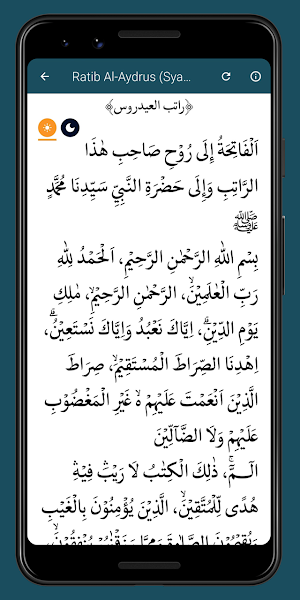 Ratib Al-Aydrus (Sya...
﴿راتب العيدروس﴾
اَلْفَاتِحَةُ إِلَى رُوْحِ صَاحِبِ هٰذَا
الرَّاتِبِ وَإِلَى حَضْرَةِ النَّبِيِّ سَيِّدِنَا مُحَمَّدٍ
ﷺ
بِسْمِ اللهِ الرَّحْمٰنِ الرَّحِيْمِ، اَلْحَمْدُ لِلّٰهِ
رَبِّ الْعٰلَمِيْنَۙ، الرَّحْمٰنِ الرَّحِيْمِۙ، مٰلِكِ
يَوْمِ الدِّيْنِۗ، اِيَّاكَ نَعْبُدُ وَاِيَّاكَ نَسْتَعِيْنُۗ،
اِهْدِنَا الصِّرَاطَ الْمُسْتَقِيْمَۙ، صِرَاطَ
الَّذِيْنَ اَنْعَمْتَ عَلَيْهِمْ ەۙ غَيْرِ الْمَغْضُوْبِ
عَلَيْهِمْ وَلَا الضَّآلِّيْنَ
الۤـمّۤۚ، ذٰلِكَ الْكِتٰبُ لَا رَيْبَۛ فِيْهِۛ
هُدًى لِّلْمُتَّقِيْنَۙ، الَّذِيْنَ يُؤْمِنُوْنَ بِالْغَيْبِ
وَيُقِيْمُوْنَ الصَّلٰوةَ وَمِمَّا رَزَقْنٰهُمْ يُنْفِقُوْنَۙ